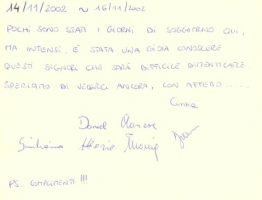 14/11/2002 ~ 16/11/2002
POCHI SONO STATI I GIORNI DI SOGGIORNO QUI,
MA INTENSI. È STATA UNA GIOIA CONOSCERE
QUESTI SIGNORI CHE SARÀ DIFFICILE DIMENTICARE
SPERIAMO DI VEDERCI ANCORA, CON AFFETTO.....
Daniel
Giuliana
PS. COMPLIMENTI !!!